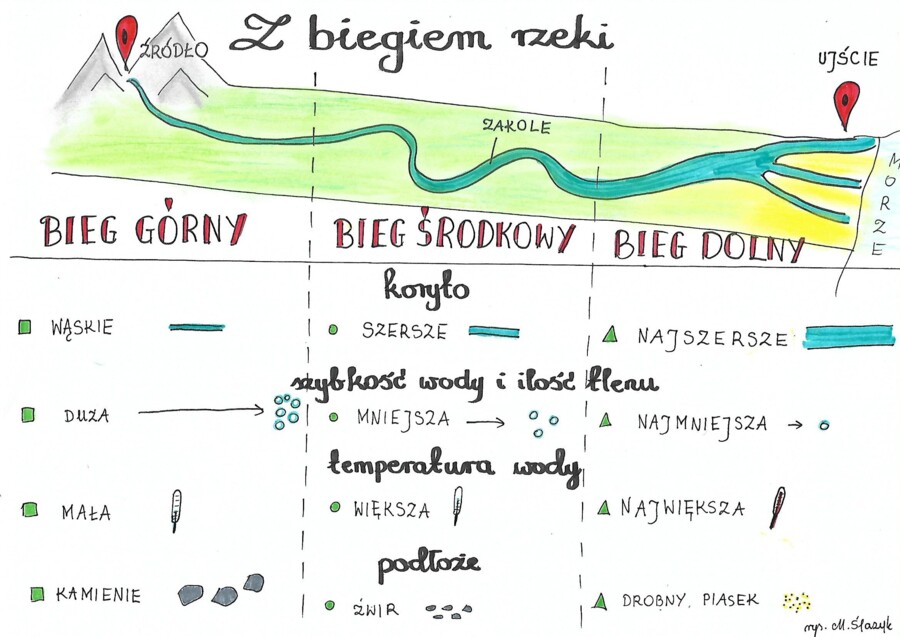 Z biegiem rzeki
ŹRÓDŁO
UJŚCIE
ZAKOLE
MORZE
BIEG GÓRNY
BIEG ŚRODKOWY
BIEG DOLNY
koryto
WĄSKIE
SZERSZE
NAJSZERSZE
szybkość wody i ilość tlenu
DUŻA
MNIEJSZA
NAJMNIEJSZA
temperatura wody
MAŁA
WIĘKSZA
NAJWIĘKSZA
podłoże
KAMIENIE
ŻWIR
DROBNY PIASEK
rys. M.